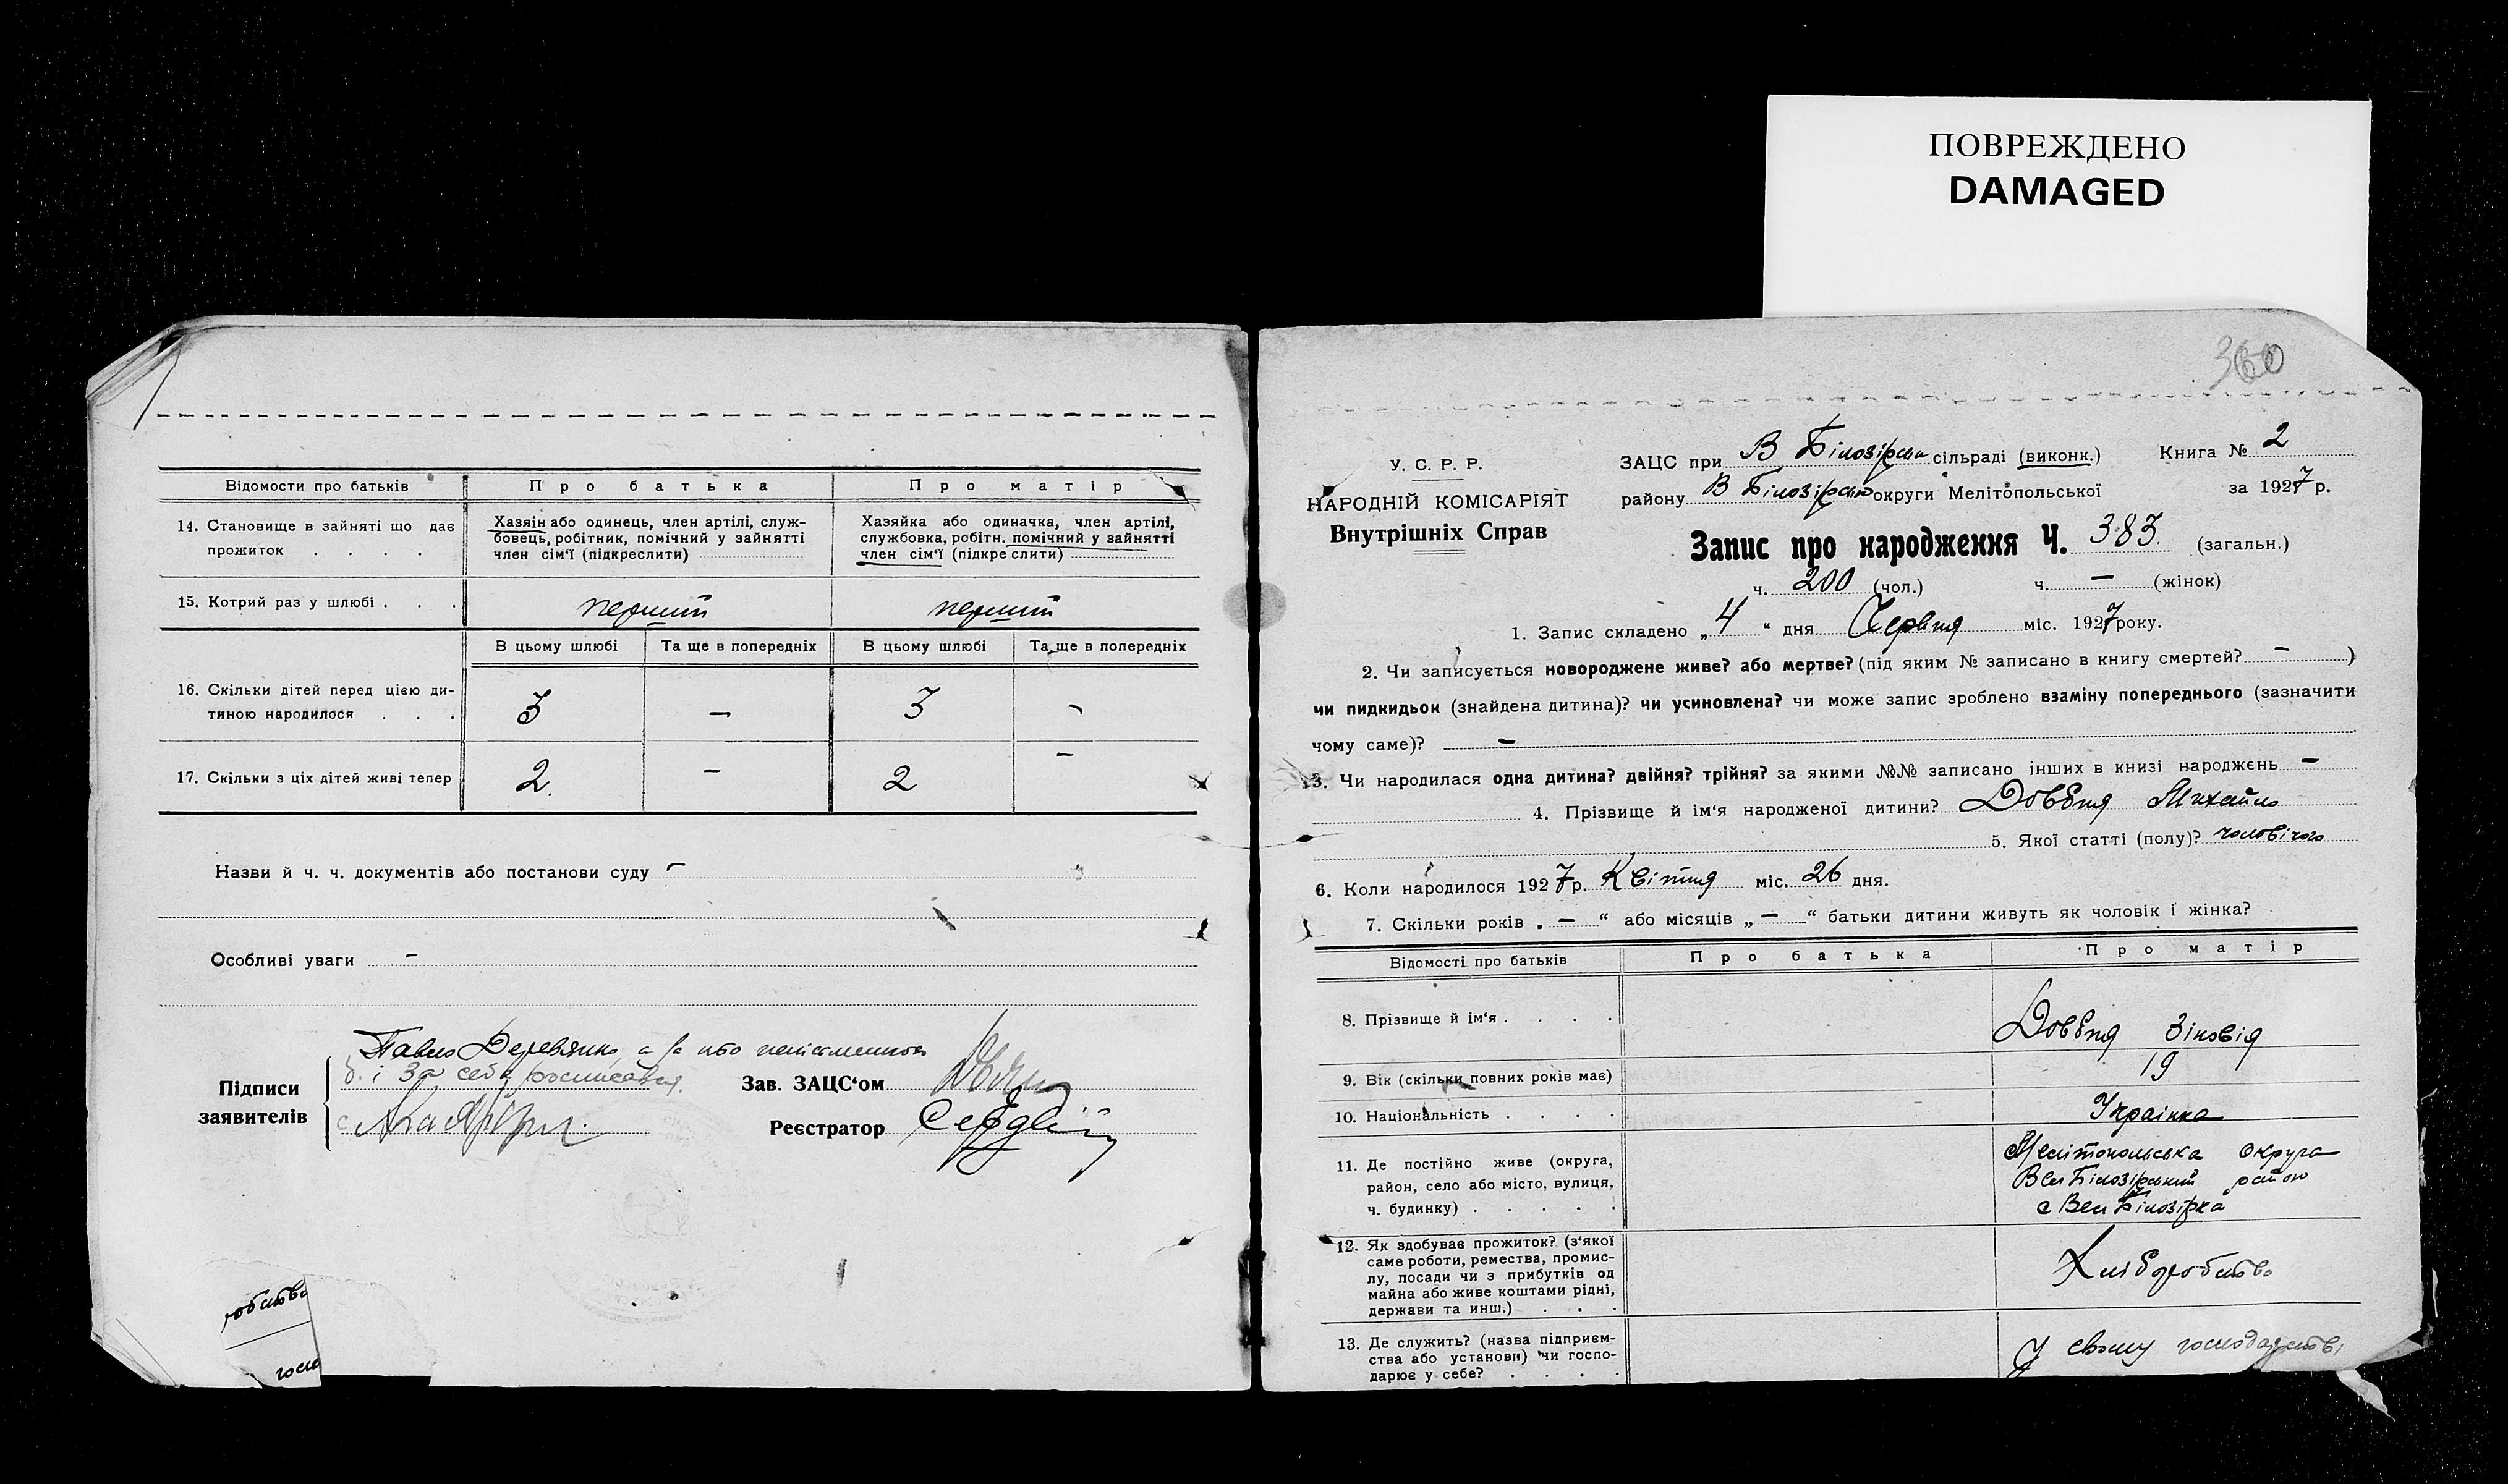 ПОВРЕЖДЕНО
DAMAGED
Відомости про батьків
Про батька
Про матір
14. Становище в зайняті що дає прожиток . . . .
Хазяін або одинець, член артілі, служ-
бовець, робітник, помічний у зайнятті
член сім‘ї (підкреслити)
Хазяйка або одиначка, член артілі,
службовка, робітн. помічний у зайнятті
член сім‘ї (підкреслити)
15. Котрий раз у шлюбі . . .
перший
перший
В цьому шлюбі
Та ще в попередніх
В цьому шлюбі
Та ще в попередніх
16. Скільки дітей перед цією ди-
тиною народилося . . .
3 — 3 -
17. Скільки з ціх дітей живі тепер
2. — 2 —
Назви й ч. ч. документів або постанови суду -
Особливі уваги -
Підписи
заявителів
Павло Деревянко
б. і за себе
Зав. ЗАЦС‘ом
Реєстратор
робство
госп
360
У. С. Р. Р.
НАРОДНІЙ КОМІСАРІЯТ
Внутрішніх Справ
ЗАЦС при В Білозірськ сільраді (виконк.) Книга № 2
району В Білозірськ округи Мелітопольської за 1927 р.
Запис про народження Ч. 383 (загальн.)
ч. 200 (чол.) ч. — (жінок)
1. Запис складено „4“ дня Червня міс. 1927 року.
2. Чи записується новороджене живе? або мертве? (під яким № записано в книгу смертей? — )
чи пидкидьок (знайдена дитина)? чи усиновлена? чи може запис зроблено взаміну попереднього (зазначити
чому саме)? —
3. Чи народилася одна дитина? двійня? трійня? за якими №№ записано інших в книзі народжень —
4. Прізвище й ім‘я народженої дитини? Довбня Михайло
5. Якої статті (полу)? чоловічого
6. Коли народилося 1927 р. Квітня міс. 26 дня.
7. Скільки років „ — “ або місяців „ — “ батьки дитини живуть як чоловік і жінка?
Відомості про батьків
Про батька
Про матір
8. Прізвище й ім‘я . . . .
Довбня Зіновія
9. Вік (скільки повних років має)
19
10. Національність . . . .
Українка
11. Де постійно живе (округа,
район, село або місто, вулиця,
ч. будинку) . . . . .
Мелітопольська округа
Вел Білозірський район
с Вел Білозірка
12. Як здобуває прожиток? (з‘якої
саме роботи, ремества, промис-
лу, посади чи з прибутків од
майна або живе коштами рідні,
держави та инш.) . . .
Хліборобство
13. Де служить? (назва підприєм-
ства або установи) чи госпо-
дарює у себе? . . . .
У свому господарстві